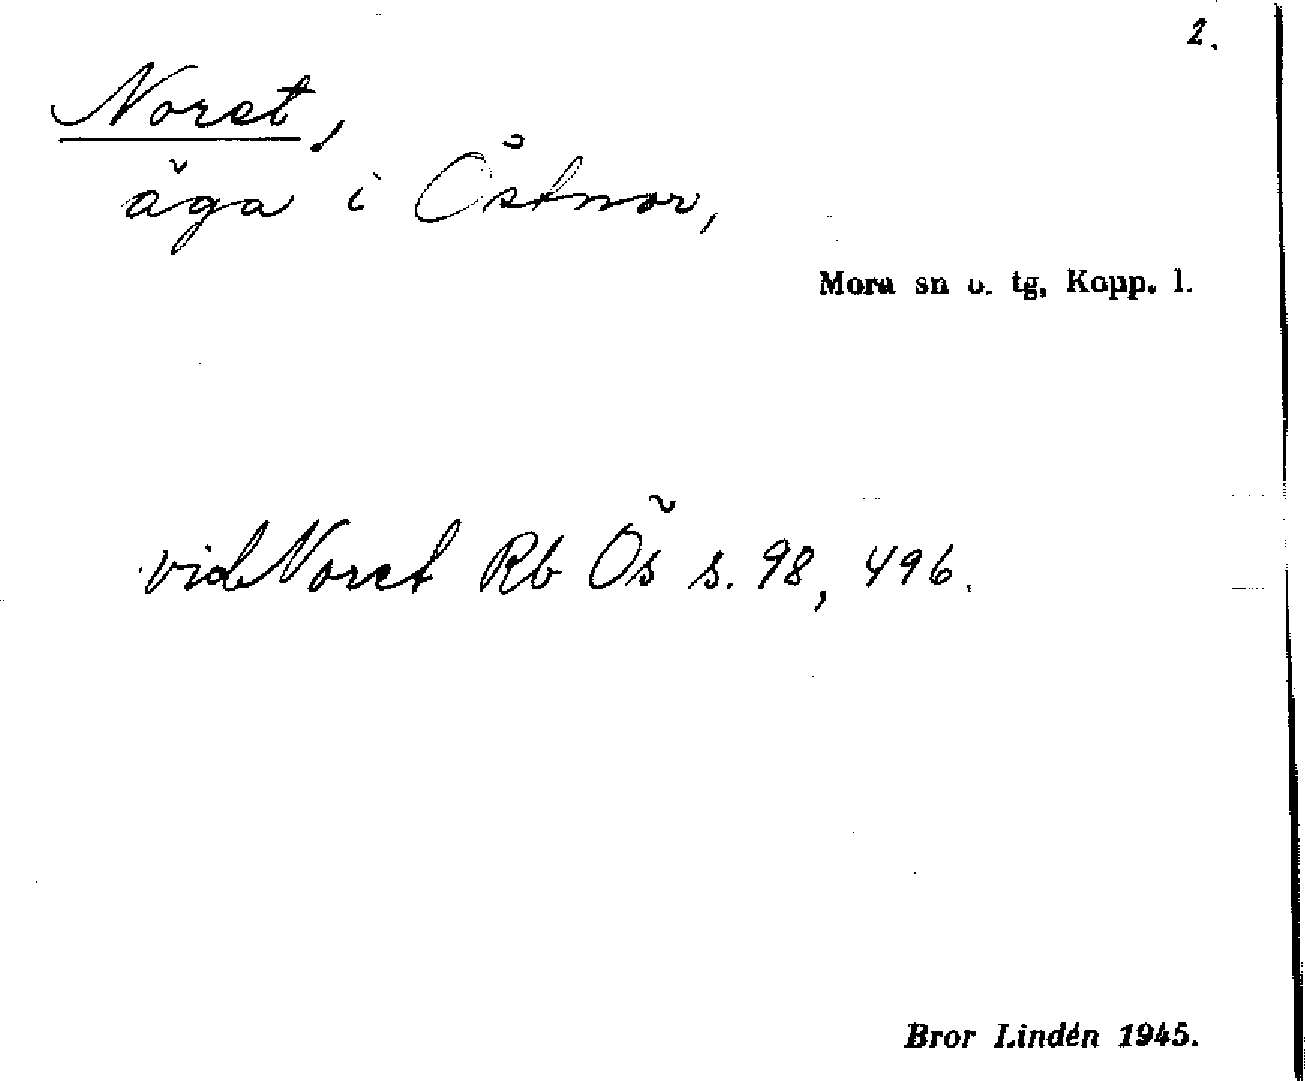 2.
Noret,
äga i Östnor,
Mora sn o. tg, Kopp. l.
vid Noret Rb Ös s. 98, 496.
Bror Lindén 1945.